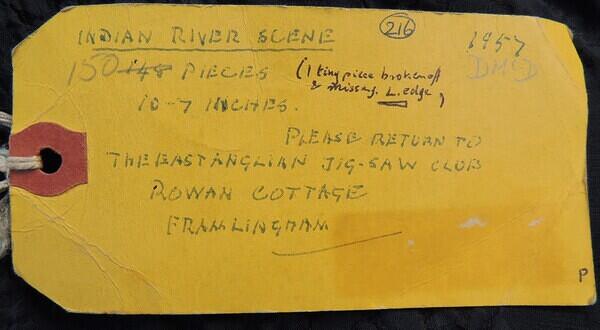 INDIAN RIVER SCENE
216
1957
DMCD
150 148 PIECES
(1 tiny piece broken off
& missing. L. edge)
10-7 INCHES.
PLEASE RETURN TO
THE EAST ANGLIAN JIG-SAW CLUB
ROWAN COTTAGE
FRAMLINGHAM
P